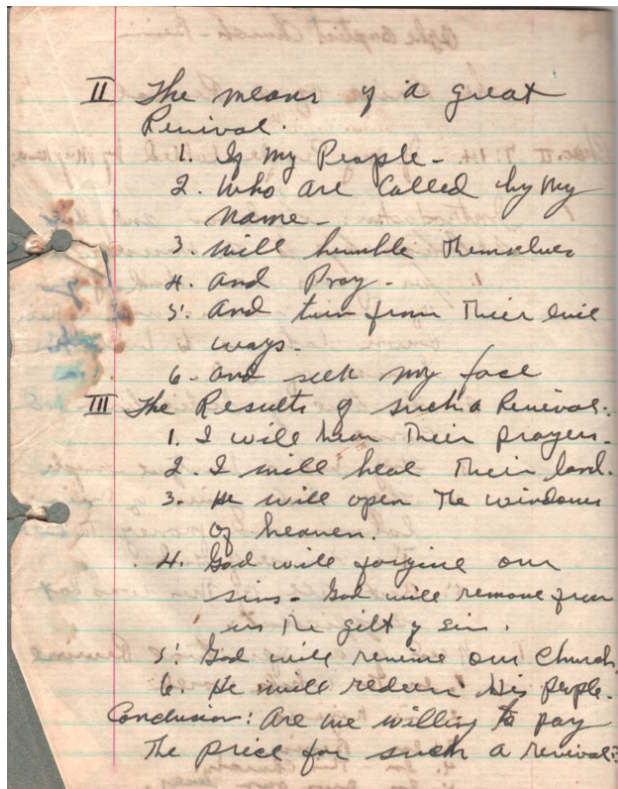 II The means of a great
Revival.
1. If my People-
2. Who are Called by My
name-
3. will humble Themselves
4. And Pray-
5. And turn from Their evil
ways.
6- And seek my face
III The Results of such a Revival.
1. I will hear Their prayers.
2. I will heal Their land.
3. He will open The windows
of heaven.
4. God will forgive our
sins- God will remove from
us The gilt of sin.
5. God will revive our Church.
6 He will redeem His people-
Conclusion: Are we willing to pay
The price for such a revival?